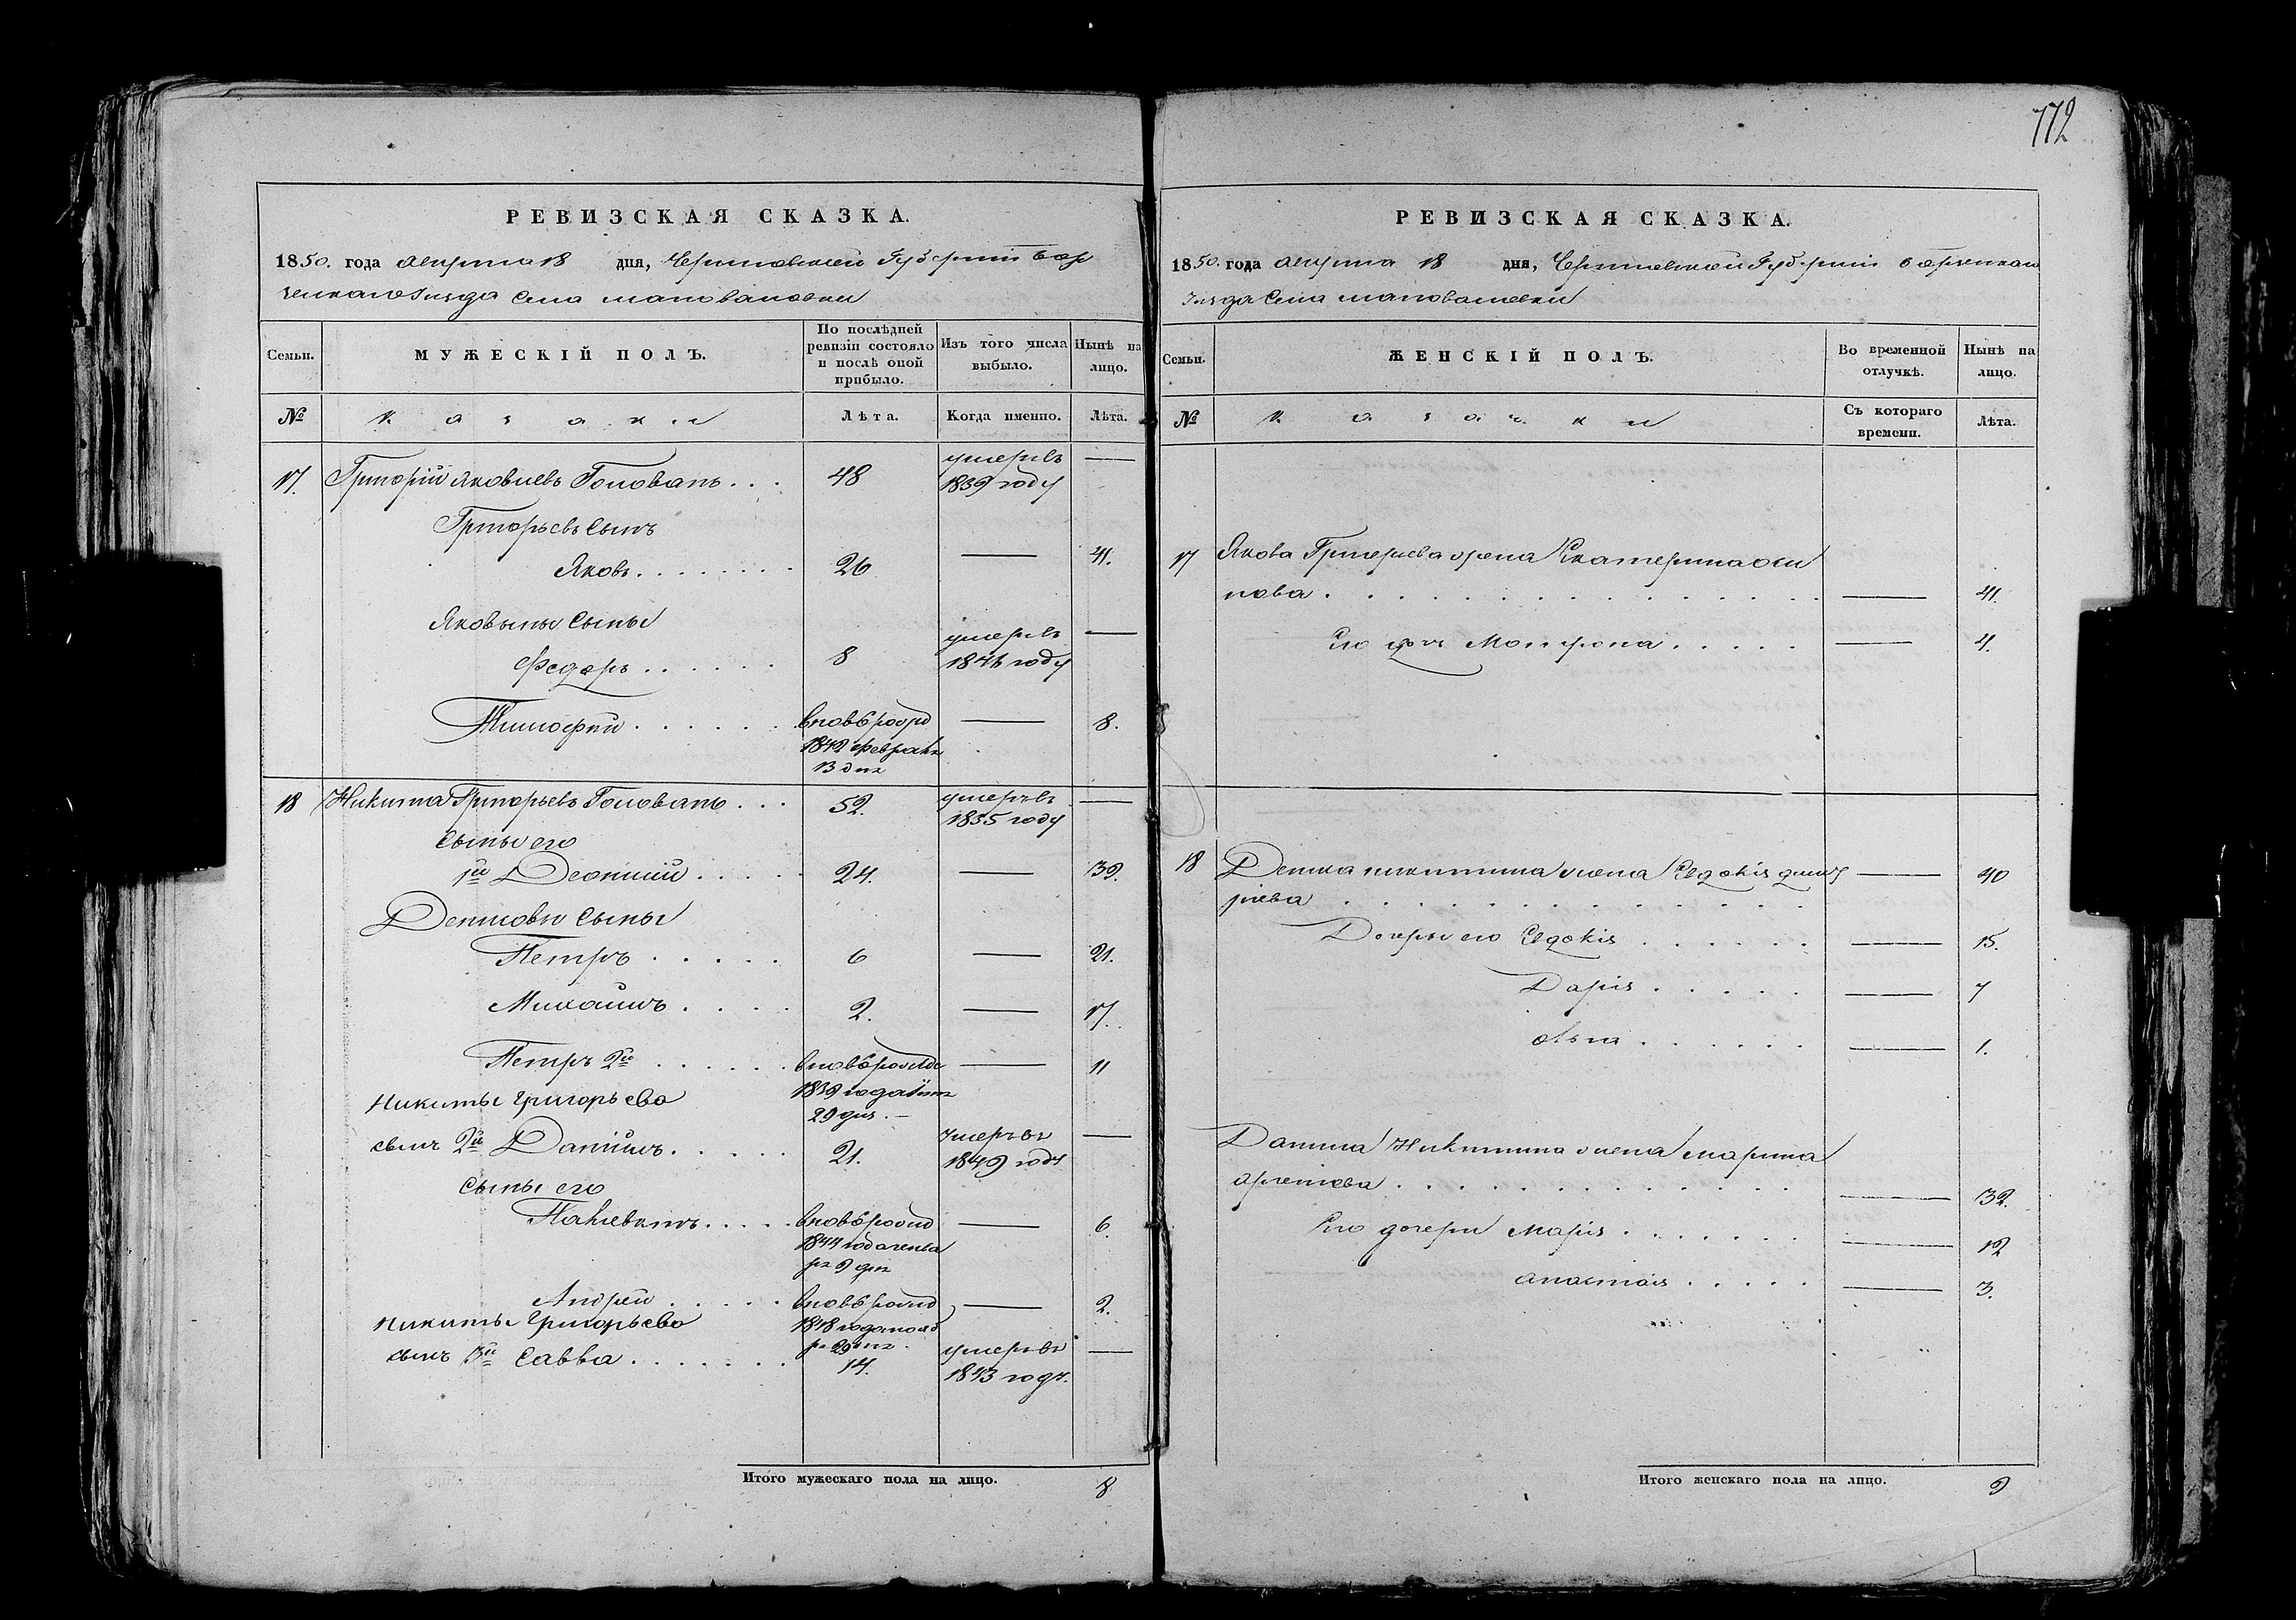 772
РЕВИЗСКАЯ СКАЗКА.
1850. года августа 18 дня, Черниговской Губернии Бор
зенского Уезда Села Шаповаловки
Семьи. МУЖЕСКІЙ ПОЛЪ. По послѣдней ревизіи состояло и послѣ оной прибыло. Изъ того числа выбыло. Нынѣ на лицо.
№ казаки Лѣта. Когда именно. Лѣта.
17. Григорій Яковлевъ Головань... 48 умеръ въ 1839 году —
Григорьевъ Сынъ
Яковъ........ 26 — 41.
Яковыны Сыны
Федоръ...... 8 умеръ въ году —
Тимофей...... вновь рожд 1842 февраля 13 дня — 8.
18 Никита Григорьевъ Головань... 52. умеръ въ 1835 году —
Сыны его
1й Деонисий..... 24. — 39.
Денисовы Сыны
Петръ..... 6 — 21.
Михаилъ.... 2. — 17.
Петръ 2й...... 1839 года 29 дня. — 11
Никиты Григорьева
сынъ 2й Даниилъ..... 21. умеръ въ 1849 году —
Сыны его
..... вновь рожд 1844 года генва ря 9 дня — 6.
Андрей..... вновь рожд 1848 года нояб ря 29 дня — 2.
Никиты Григорьева
сынъ 3й Савва....... 14. умеръ въ 1843 году. —
Итого мужескаго пола на лицо. 8
РЕВИЗСКАЯ СКАЗКА.
1850. года августа 18 дня, Черниговской Губернии Борзенского
Уезда Села Шаповаловки
Семьи. ЖЕНСКІЙ ПОЛЪ. Во временной отлучкѣ. Нынѣ на лицо.
№ казачки Съ котораго времени. Лѣта.
17 Якова Григорьева жена Екатерина Оси
пова............... — 41.
Его дочь Мотрона..... — 4.
18 Дениса Никитина жена Евдокия Дмит
риева............. — 40
Дочеры его Евдокия...... — 15.
Дария..... — 7
...... — 1.
Данила Никитина жена Марина
............. — 32.
Его дочери Мария...... — 12
Анастасия..... — 3.
Итого женскаго пола на лицо. 9